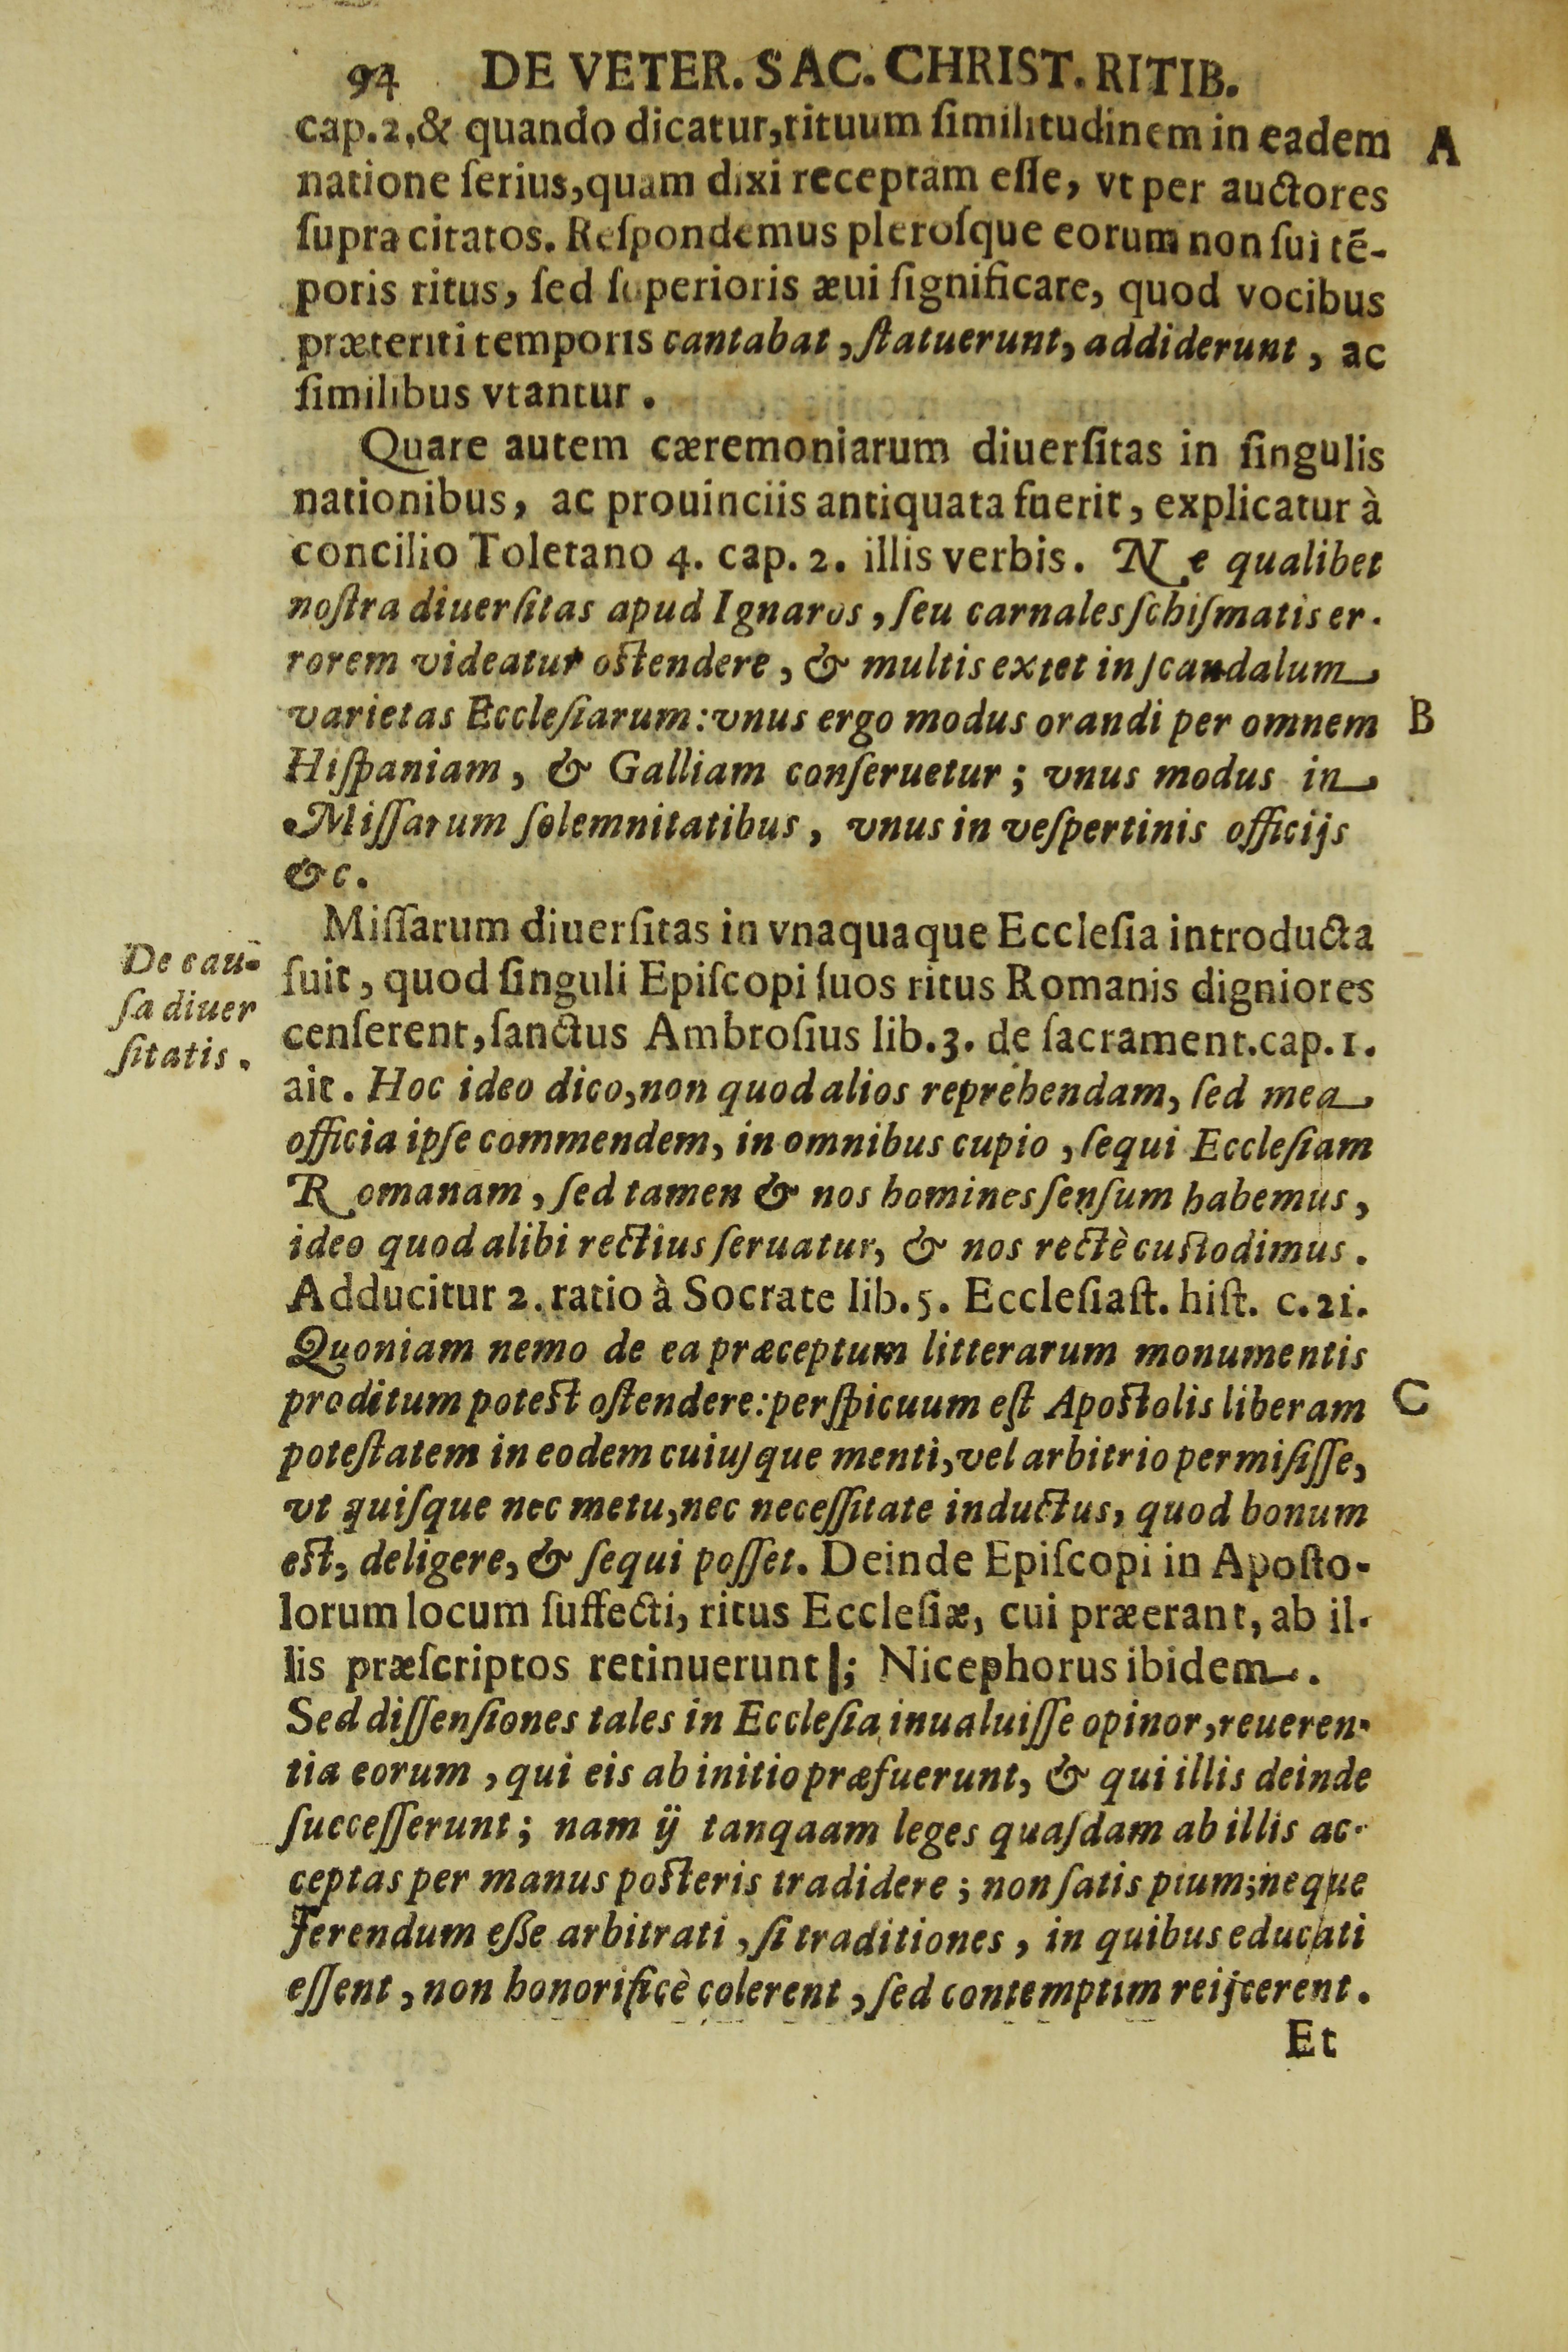 94 DE VETER. SAC. CHRIST. RITIB.
cap.2,& quando dicatur,rituum ſimilitudinem in eadem
A
natione ſerius,quam dixi receptam eſſe, vt per auctores
ſupra citatos. Reſpondemus pleroſque eorum non ſui tē-
poris ritus, ſed ſuperioris æui ſignificare, quod vocibus
præteriti temporis cantabat, ſtatuerunt, addiderunt, ac
ſimilibus vtantur.
Quare autem cæremoniarum diuerſitas in ſingulis
nationibus, ac prouinciis antiquata fuerit, explicatur à
concilio Toletano 4. cap. 2. illis verbis. Ne qualibet
noſtra diuerſitas apud Ignaros, ſeu carnales ſchiſmatis er-
rorem videatur oſtendere, & multis extet in ſcandalum
varietas Eccleſiarum: vnus ergo modus orandi per omnem
B
Hiſpaniam, & Galliam conſeruetur; vnus modus in
Miſſarum ſolemnitatibus, vnus in veſpertinis officijs
&c.
De cau-
ſa diuer
ſitatis.
Miſſarum diuerſitas in vnaquaque Eccleſia introducta
fuit, quod ſinguli Epiſcopi ſuos ritus Romanis digniores
cenſerent,ſanctus Ambroſius lib.3. de ſacrament.cap.1.
ait. Hoc ideo dico,non quod alios reprehendam, ſed mea
officia ipſe commendem, in omnibus cupio, ſequi Eccleſiam
Romanam, ſed tamen & nos homines ſenſum habemus,
ideo quod alibi rectius ſeruatur, & nos rectè cuſtodimus.
Adducitur 2. ratio à Socrate lib.5. Eccleſiaſt. hiſt. c.21.
Quoniam nemo de ea præceptum litterarum monumentis
proditum poteſt oſtendere: perſpicuum eſt Apoſtolis liberam
C
poteſtatem in eodem cuiuſque menti,vel arbitrio permiſiſſe,
vt quiſque nec metu,nec neceſſitate inductus, quod bonum
eſt, deligere, & ſequi poſſet. Deinde Epiſcopi in Apoſto-
lorum locum ſuffecti, ritus Eccleſiæ, cui præerant, ab il-
lis præſcriptos retinuerunt|; Nicephorus ibidem.
Sed diſſenſiones tales in Eccleſia inualuiſſe opinor,reueren-
tia eorum, qui eis ab initio præfuerunt, & qui illis deinde
ſucceſſerunt; nam ij tanqaam leges quaſdam ab illis ac-
ceptas per manus poſteris tradidere; non ſatis pium;neque
ferendum eße arbitrati, ſi traditiones, in quibus educati
eſſent, non honorificè colerent, ſed contemptim reijcerent.
Et